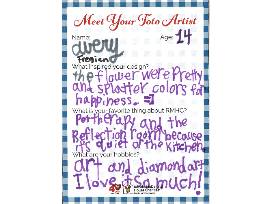 Meet Your Toto Artist
Name: avery
Age: 14
What inspired your design?
the flower were Pretty
and splatter colors for
happiness. =]
What is your favorite thing about RMHC?
Pet therapy and the
Reflection room because
it's quiet or the Kitchen
What are your hobbies?
art and diamond art
I love it so much!